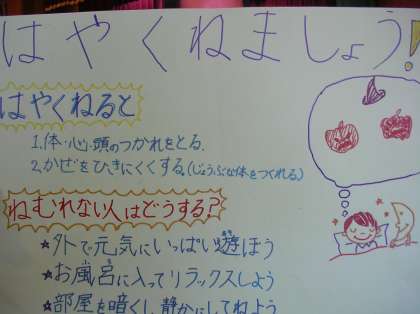 はやくねましょう!
はやくねると
1.体・心・頭のつかれをとる.
2.かぜをひきにくくする.(じょうぶな体をつくれる)
ねむれない人はどうする?
★外で元気にいっぱい遊ぼう
★お風呂に入ってリラックスしよう
★部屋を暗くし静かにしてねよう